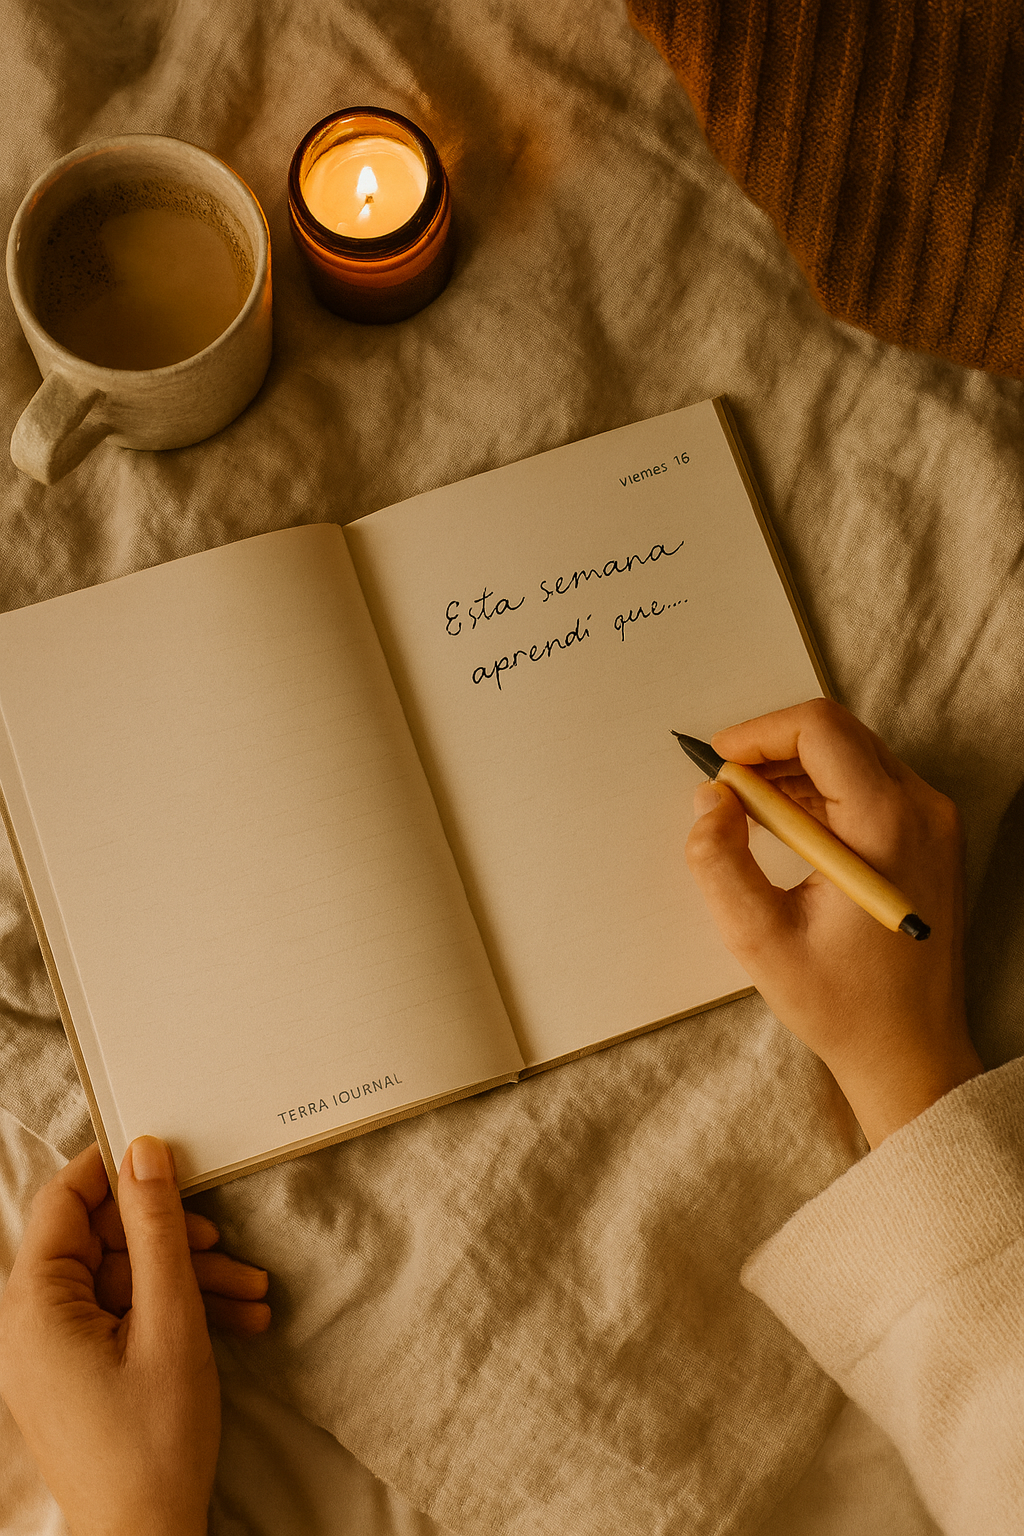 viemes 16
Esta semana
aprendí que....
TERRA IOURNAL